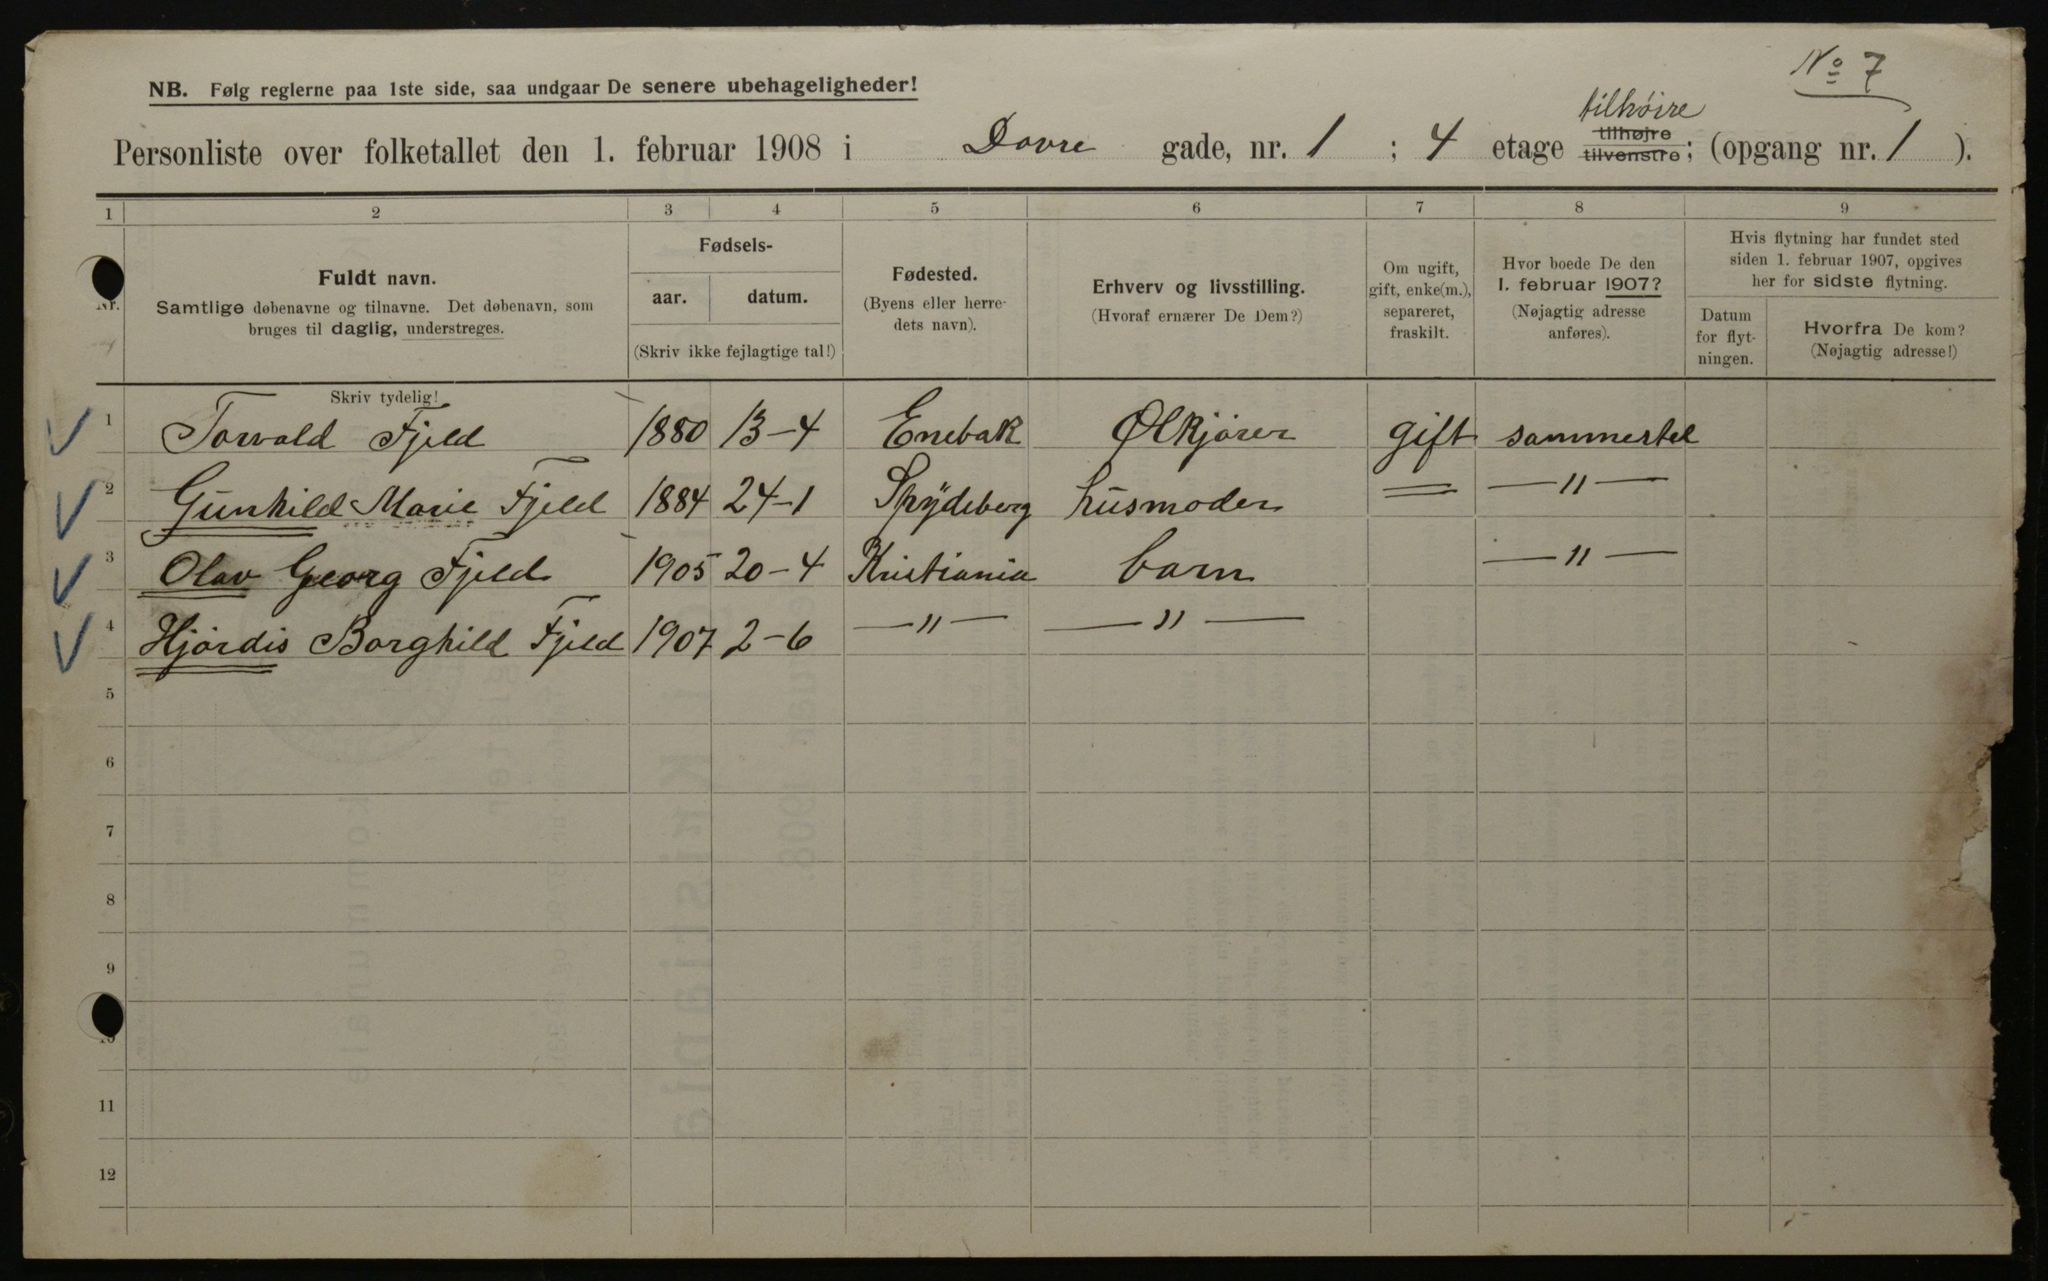 No 7
NB. Følg reglerne paa 1ste side, saa undgaar De senere ubehageligheder!
tilhøire
Personliste over folketallet den 1. februar 1908 i Dovre gade, nr. 1 ; 4 etage tilhøjre tilvenstre; (opgang nr. 1 ).
1 2 3 4 5 6 7 8 9
Nr.
Fuldt navn.
Samtlige døbenavne og tilnavne. Det døbenavn, som
bruges til daglig, understreges.
Fødsels-
aar. datum.
(Skriv ikke fejlagtige tal!)
Fødested.
(Byens eller herre-
dets navn).
Erhverv og livsstilling.
(Hvoraf ernærer De Dem?)
Om ugift,
gift, enke(m.),
separeret,
fraskilt.
Hvor boede De den
1. februar 1907?
(Nøjagtig adresse
anføres).
Hvis flytning har fundet sted
siden 1. februar 1907, opgives
her for sidste flytning.
Datum
for flyt-
ningen.
Hvorfra De kom?
(Nøjagtig adresse!)
Skriv tydelig!
1 Torvald Fjeld 1880 13-4 Enebak Ølkjører gift sammested
2 Gunhild Marie Fjeld 1884 24-1 Spydeberg husmoder — —"—
3 Olav Georg Fjeld 1905 20-4 Kristiania barn —"—
4 Hjørdis Borghild Fjeld 1907 2-6 —"— —"—
5
6
7
8
9
10
11
12